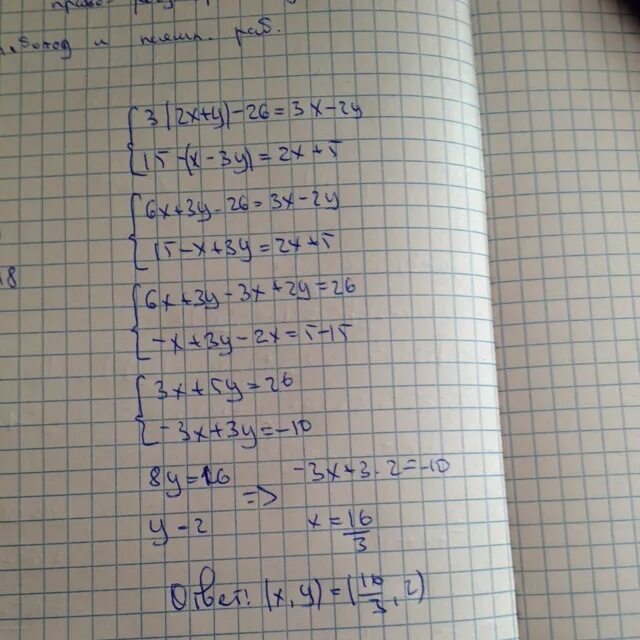 и
раб.
3(2x+y)-26=3x-2y
15-(x-3y)=2x+5
6x+3y-26=3x-2y
15-x+3y=2x+5
18
6x+3y-3x+2y=26
-x+3y-2x=5-15
3x+5y=26
-3x+3y=-10
8y=16 => -3x+3·2=-10
y=2 x=16/3
Ответ: (x,y)=(16/3, 2)